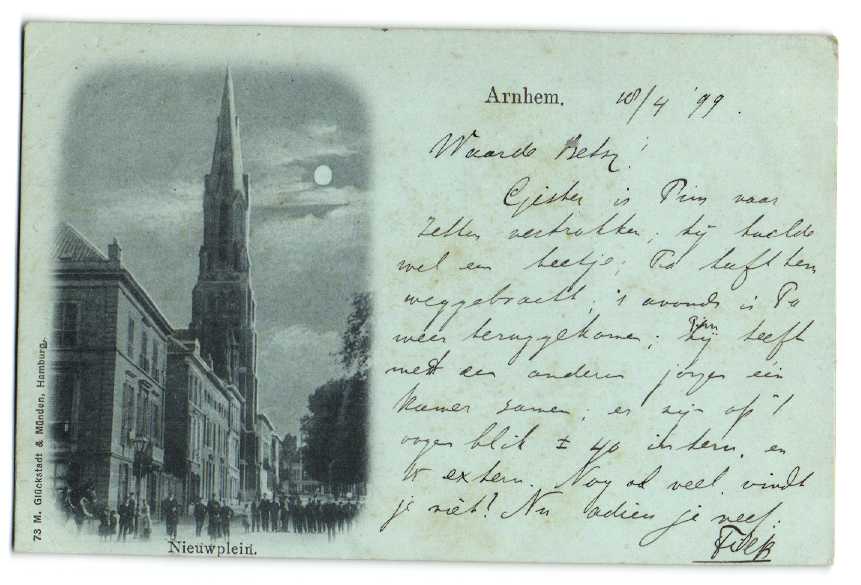 Arnhem. 18/4 '99.
Waarde Betsy!
Gister is Pim naar
Zetten vertrokken; hij huilde
wel een beetje; Pa heeft hem
weggebracht; 's avonds is Pa
weer teruggekomen; Pim
hij heeft
met een anderen jongen één
kamer samen; er zijn op 't
oogenblik ± 40 intern, en
extern. Nog al veel, vindt
je niet? Nu adieu je neef.
Nieuwplein.
73 M. Glückstadt & Münden, Hamburg.